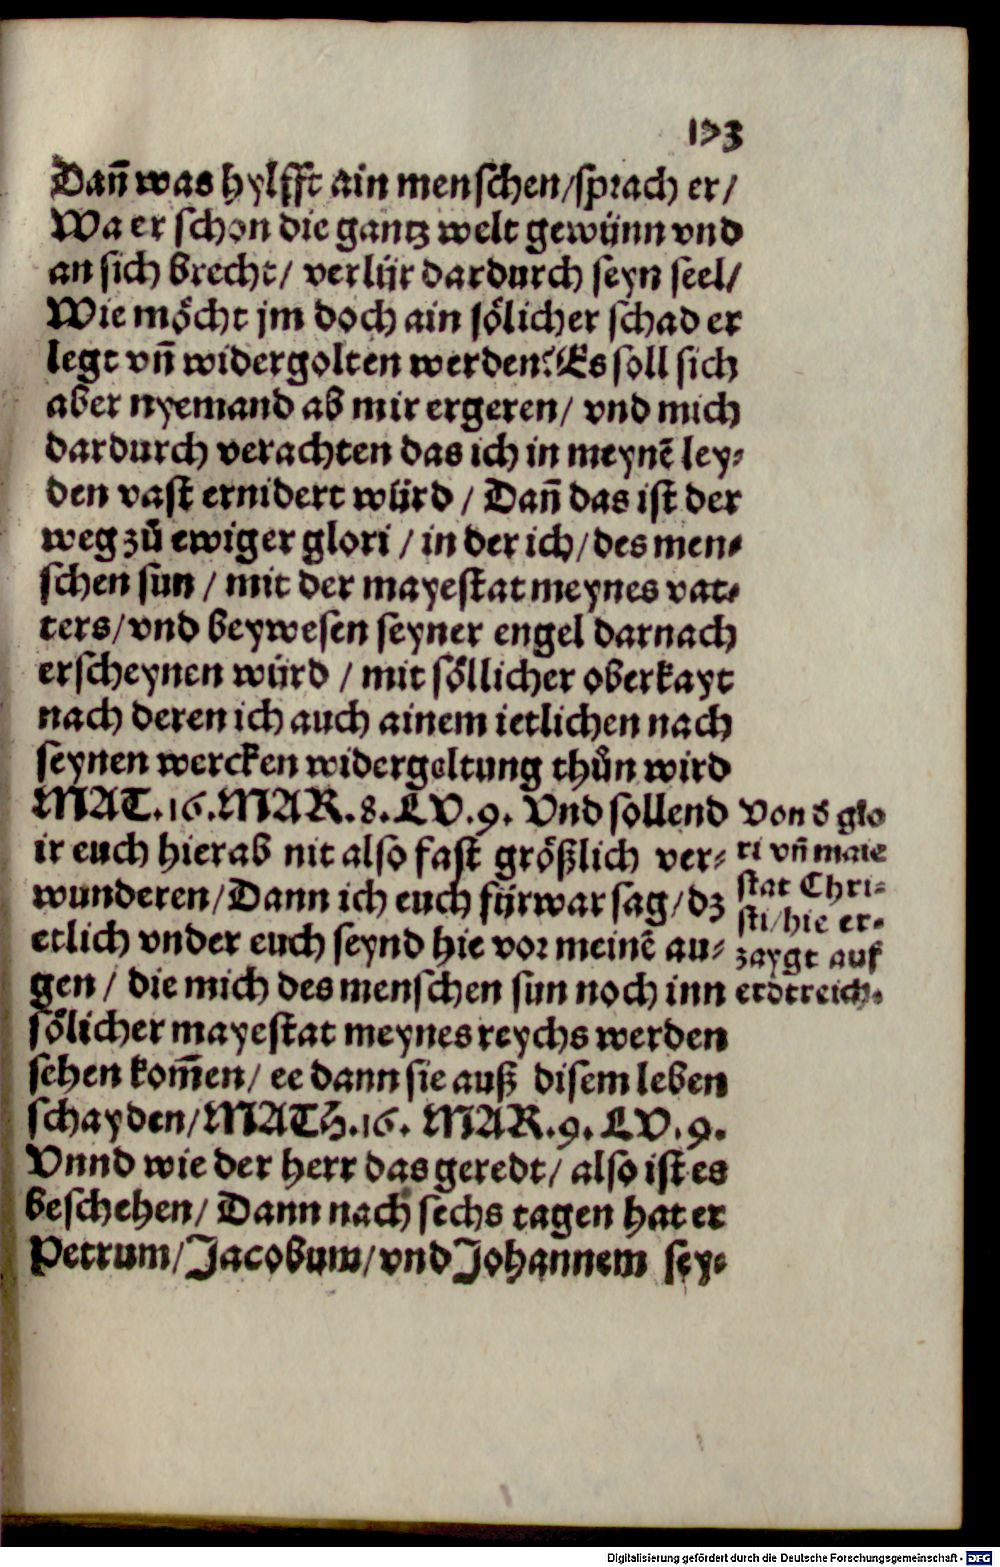 173
Dañ was hylfft ain menschen/sprach er/
Wa er schon die gantz welt gewünn vnd
an sich brecht/ verlür dardurch seyn seel/
Wie möcht jm doch ain sölicher schad er
legt vñ widergolten werden? Es soll sich
aber nyemand ab mir ergeren/ vnd mich
dardurch verachten das ich in meynē ley-
den vast ernidert würd / Dañ das ist der
weg zů ewiger glori / in der ich/des men-
schen sun / mit der mayestat meynes vat-
ters/vnd beywesen seyner engel darnach
erscheynen würd / mit söllicher oberkayt
nach deren ich auch ainem ietlichen nach
seynen wercken widergeltung thůn wird
MAT.16.MAR.8.LV.9. Vnd sollend
ir euch hierab nit also fast größlich ver-
wunderen/Dann ich euch fürwar sag/dz
etlich vnder euch seynd hie vor meinē au-
gen / die mich des menschen sun noch inn
sölicher mayestat meynes reychs werden
sehen kom̄en/ ee dann sie auß disem leben
schayden/MATH.16. MAR.9.LV.9.
Vnnd wie der herr das geredt/ also ist es
beschehen/ Dann nach sechs tagen hat er
Petrum/Jacobum/vnd Johannem sey-
Von d̕ glo
ri vñ maie
stat Chri-
sti/hie er-
zaygt auf
erdtreich.
Digitalisierung gefördert durch die Deutsche Forschungsgemeinschaft - DFG